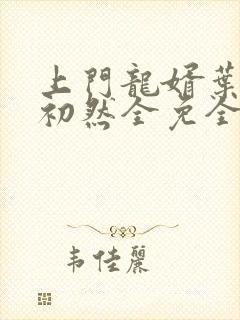 上門龍婿葉
初然全免全
韦佳麗